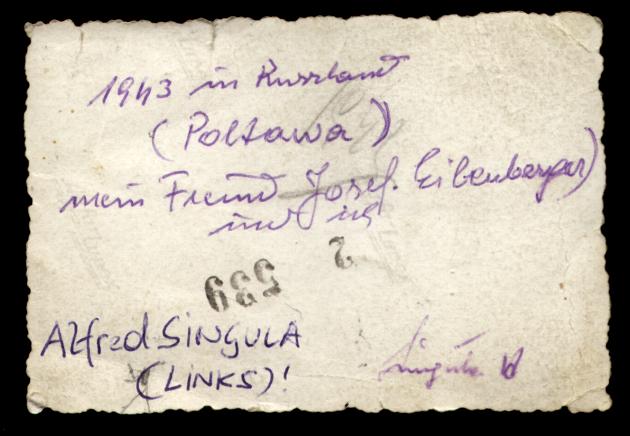 1943 in Russland
(Poltawa)
mein Freund Josef Eibenberger)
und ich
539 2
Alfred SINGULA
(LINKS)!
Singula